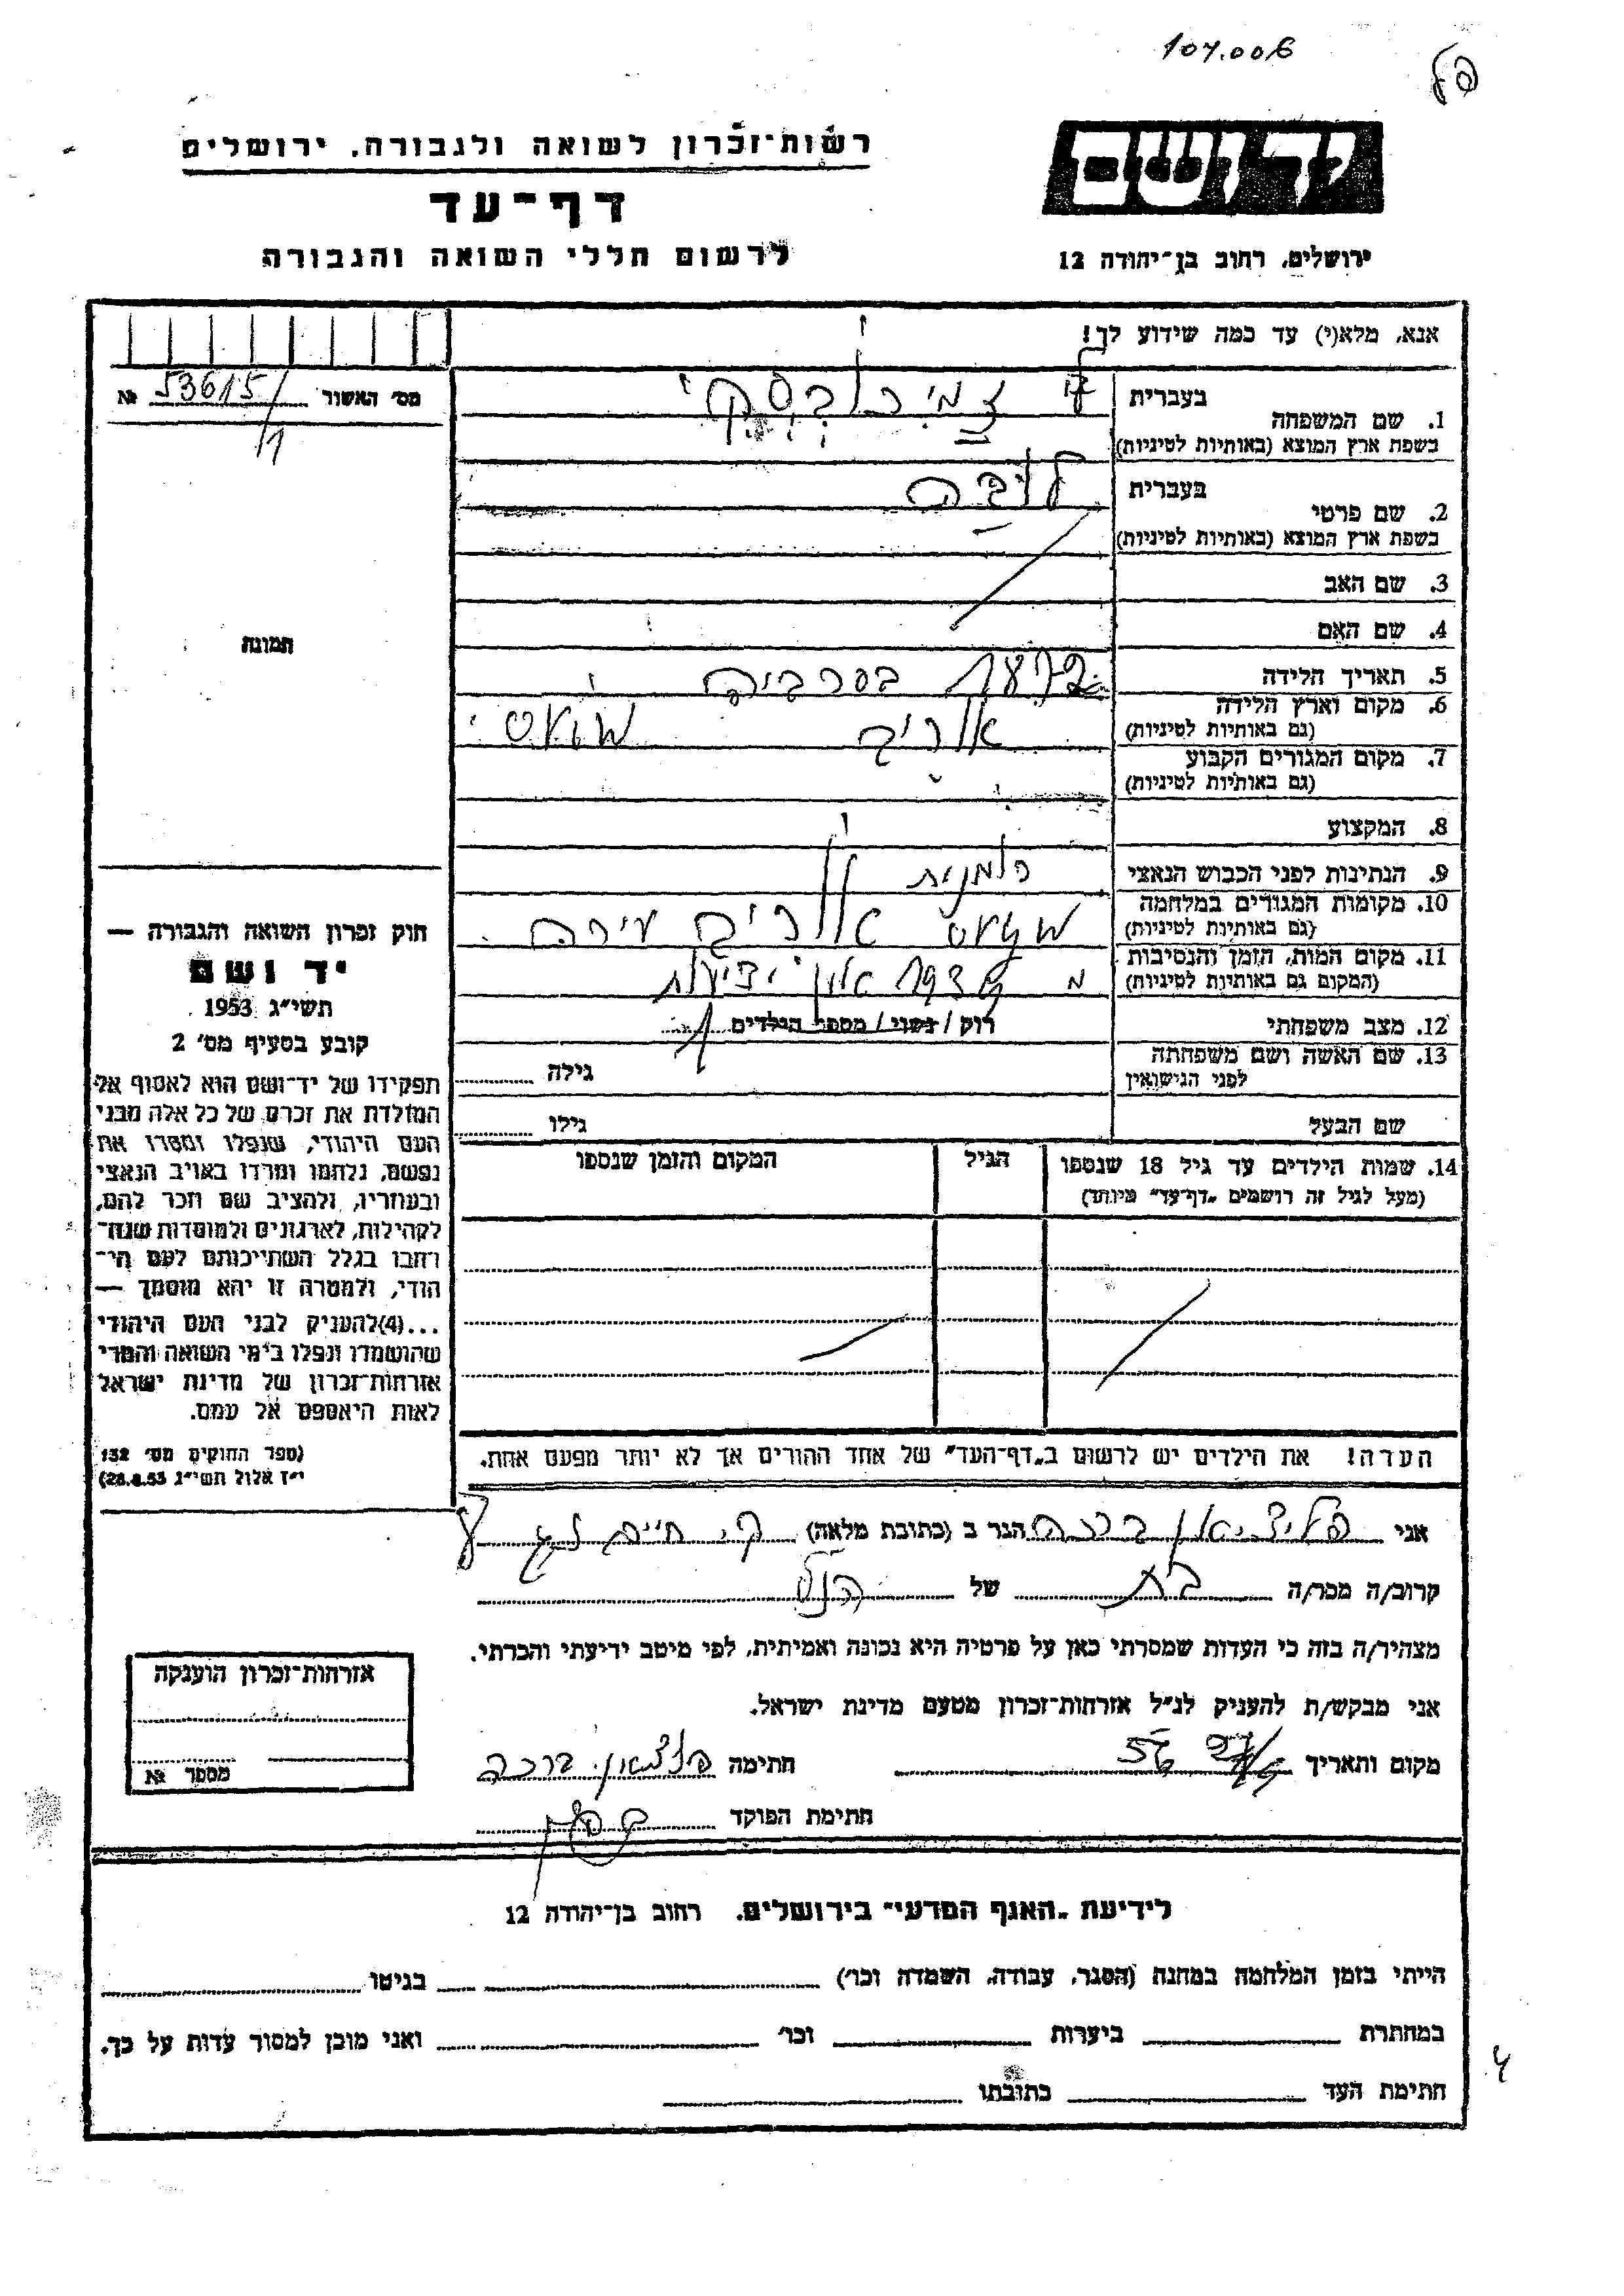 107.006
רשות־זכרון לשואה ולגבורה, ירושלים
דף־עד
לרשום חללי השואה והגבורה
יד ושם
ירושלים, רחוב בן־יהודה 12
אנא, מלא(י) עד כמה שידוע לך!
מס' האשור 53615/ №
1. שם המשפחה
בעברית
בשפת ארץ המוצא (באותיות לטיניות)
2. שם פרטי
בעברית
בשפת ארץ המוצא (באותיות לטיניות)
3. שם האב
4. שם האם
תמונה
5. תאריך הלידה
בסרביה
6. מקום וארץ הלידה
(גם באותיות לטיניות)
7. מקום המגורים הקבוע
(גם באותיות לטיניות)
8. המקצוע
9. הנתינות לפני הכבוש הנאצי
10. מקומות המגורים במלחמה
(גם באותיות לטיניות)
11. מקום המות, הזמן והנסיבות
(המקום גם באותיות לטיניות)
12. מצב משפחתי רוק / נשוי / מספר הילדים
13. שם האשה ושם משפחתה
לפני הנישואין
גילה
שם הבעל גילו
14. שמות הילדים עד גיל 18 שנספו הגיל המקום והזמן שנספו
(מעל לגיל זה רושמים „דף־עד” מיוחד)
הערה! את הילדים יש לרשום ב„דף־העד” של אחד ההורים אך לא יותר מפעם אחת.
חוק זכרון השואה והגבורה —
יד ושם
תשי״ג 1953
קובע בסעיף מס' 2
תפקידו של יד־ושם הוא לאסוף אל
המולדת את זכרם של כל אלה מבני
העם היהודי, שנפלו ומסרו את
נפשם, נלחמו ומרדו באויב הנאצי
ובעוזריו, ולהציב שם וזכר להם,
לקהילות, לארגונים ולמוסדות שנח־
רבו בגלל השתייכותם לעם הי־
הודי, ולמטרה זו יהא מוסמך —
...(4)להעניק לבני העם היהודי
שהושמדו ונפלו בימי השואה והמרי
אזרחות־זכרון של מדינת ישראל
לאות היאספם אל עמם.
(ספר החוקים מס' 132
י״ז אלול תשי״ג 28.8.53)
אני ברכה הגר ב (כתובת מלאה) ק. חיים
קרוב/ה מכר/ה בת של הנ״ל
מצהיר/ה בזה כי העדות שמסרתי כאן על פרטיה היא נכונה ואמיתית, לפי מיטב ידיעתי והכרתי.
אני מבקש/ת להעניק לנ״ל אזרחות־זכרון מטעם מדינת ישראל.
מקום ותאריך 56 חתימה ברכה
חתימת הפוקד
אזרחות־זכרון הוענקה
מספר №
לידיעת „האגף המדעי” בירושלים, רחוב בן־יהודה 12
הייתי בזמן המלחמה במחנה (הסגר, עבודה, השמדה וכו') בגיטו
במחתרת ביערות וכו' ואני מוכן למסור עדות על כך.
חתימת העד כתובתו